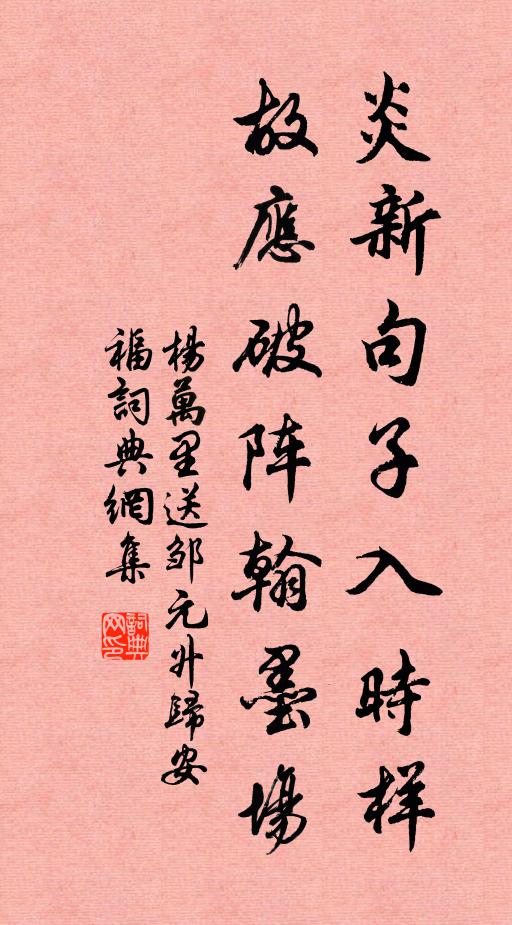 炎新句子入時样
故應破阵翰墨場
楊萬里送邹元升歸安
福詞典網集
詞典网印